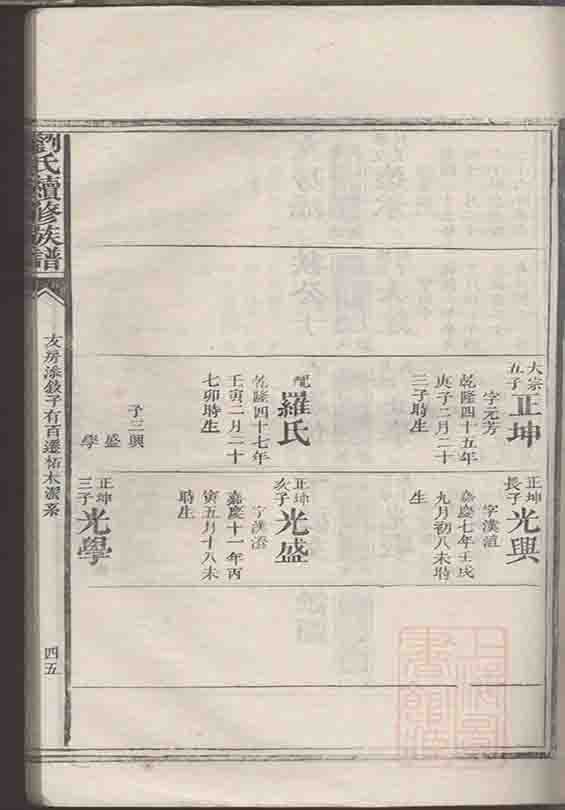 大宗
五子
正坤
字元芳
乾隆四十五年
庚子二月二十
三子時生
配
羅氏
乾隆四十七年
壬寅二月二十
七卯時生
子三興
盛
學
正坤
長子
光興
字漢
嘉慶七年壬戌
九月初八未時
生
正坤
次子
光盛
字漢
嘉慶十一年丙
寅五月十八未
時生
正坤
三子
光學
劉氏續修族譜
友房添敘子有百遷柘木
系
四五